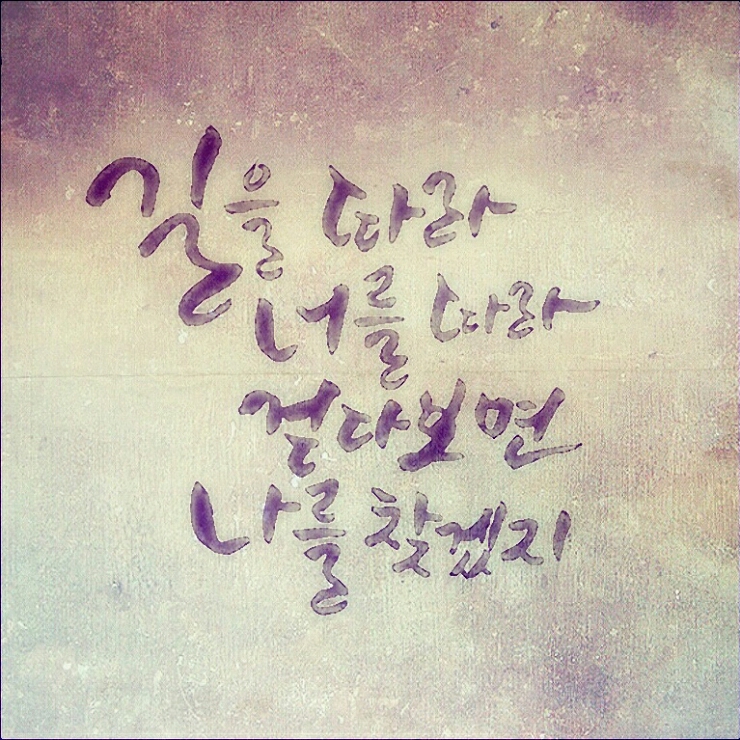 길을 따라
너를 따라
걷다보면
나를 찾겠지